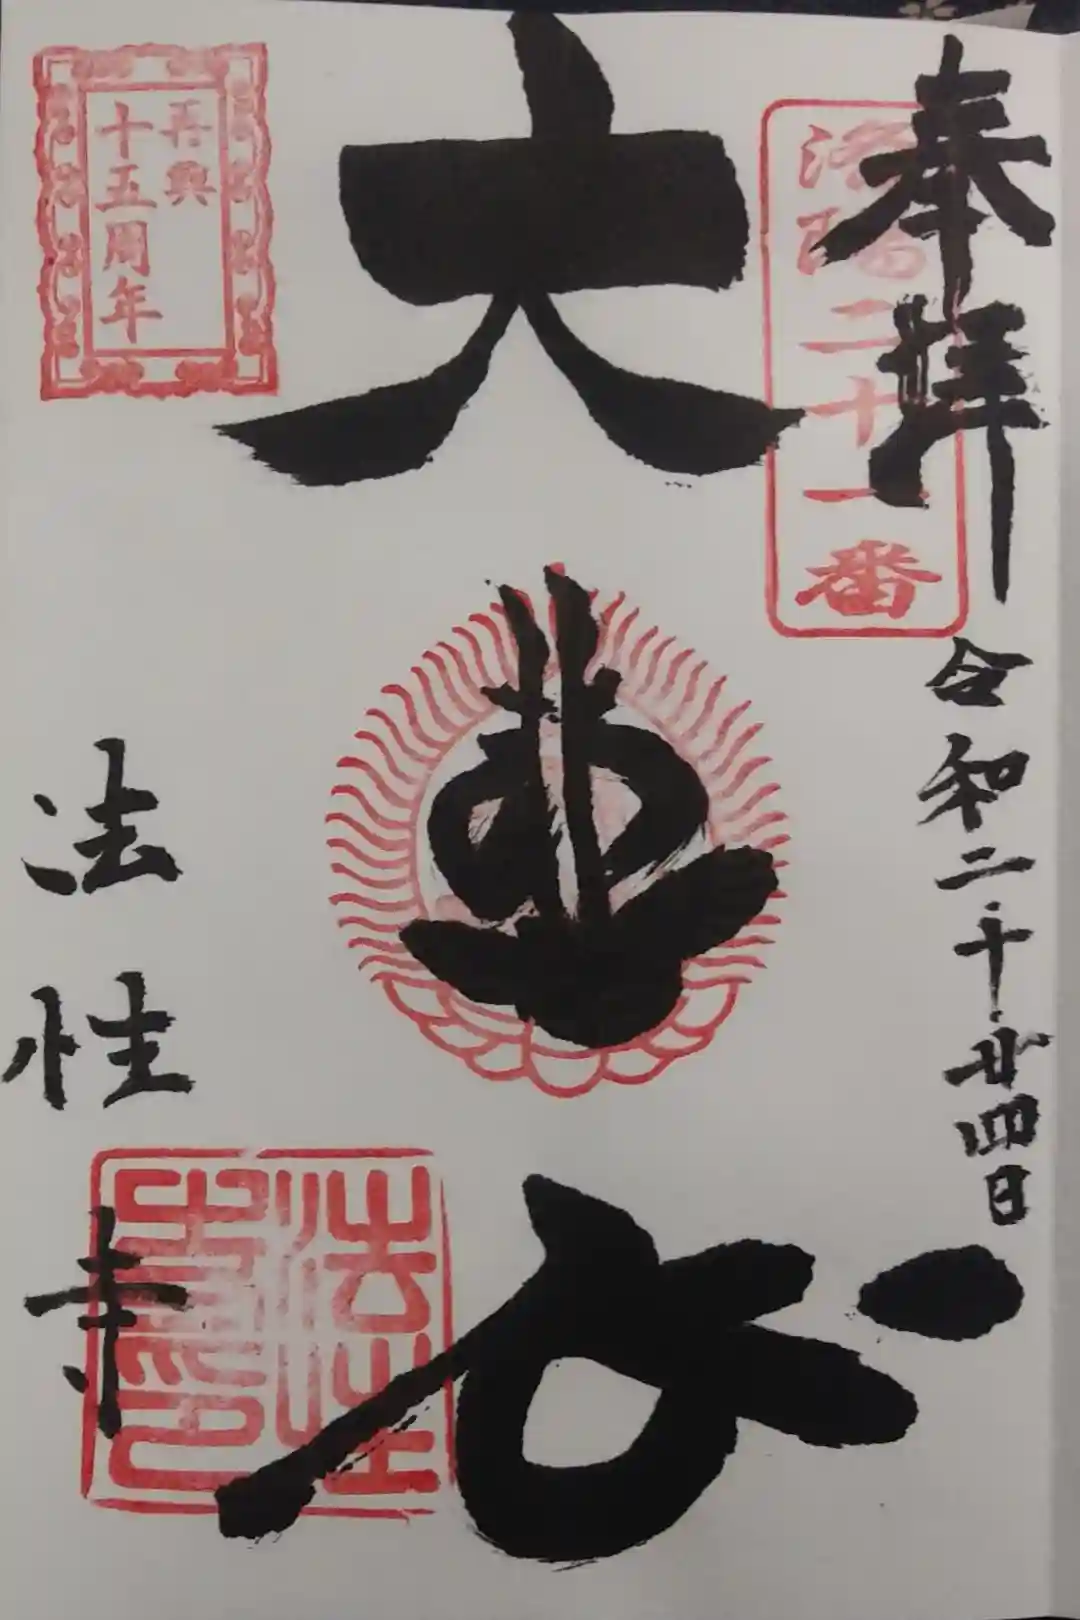 奉拝
洛陽二十一番
令和二十廿四日
大悲
再興
十五周年
法性寺
法性
寺印